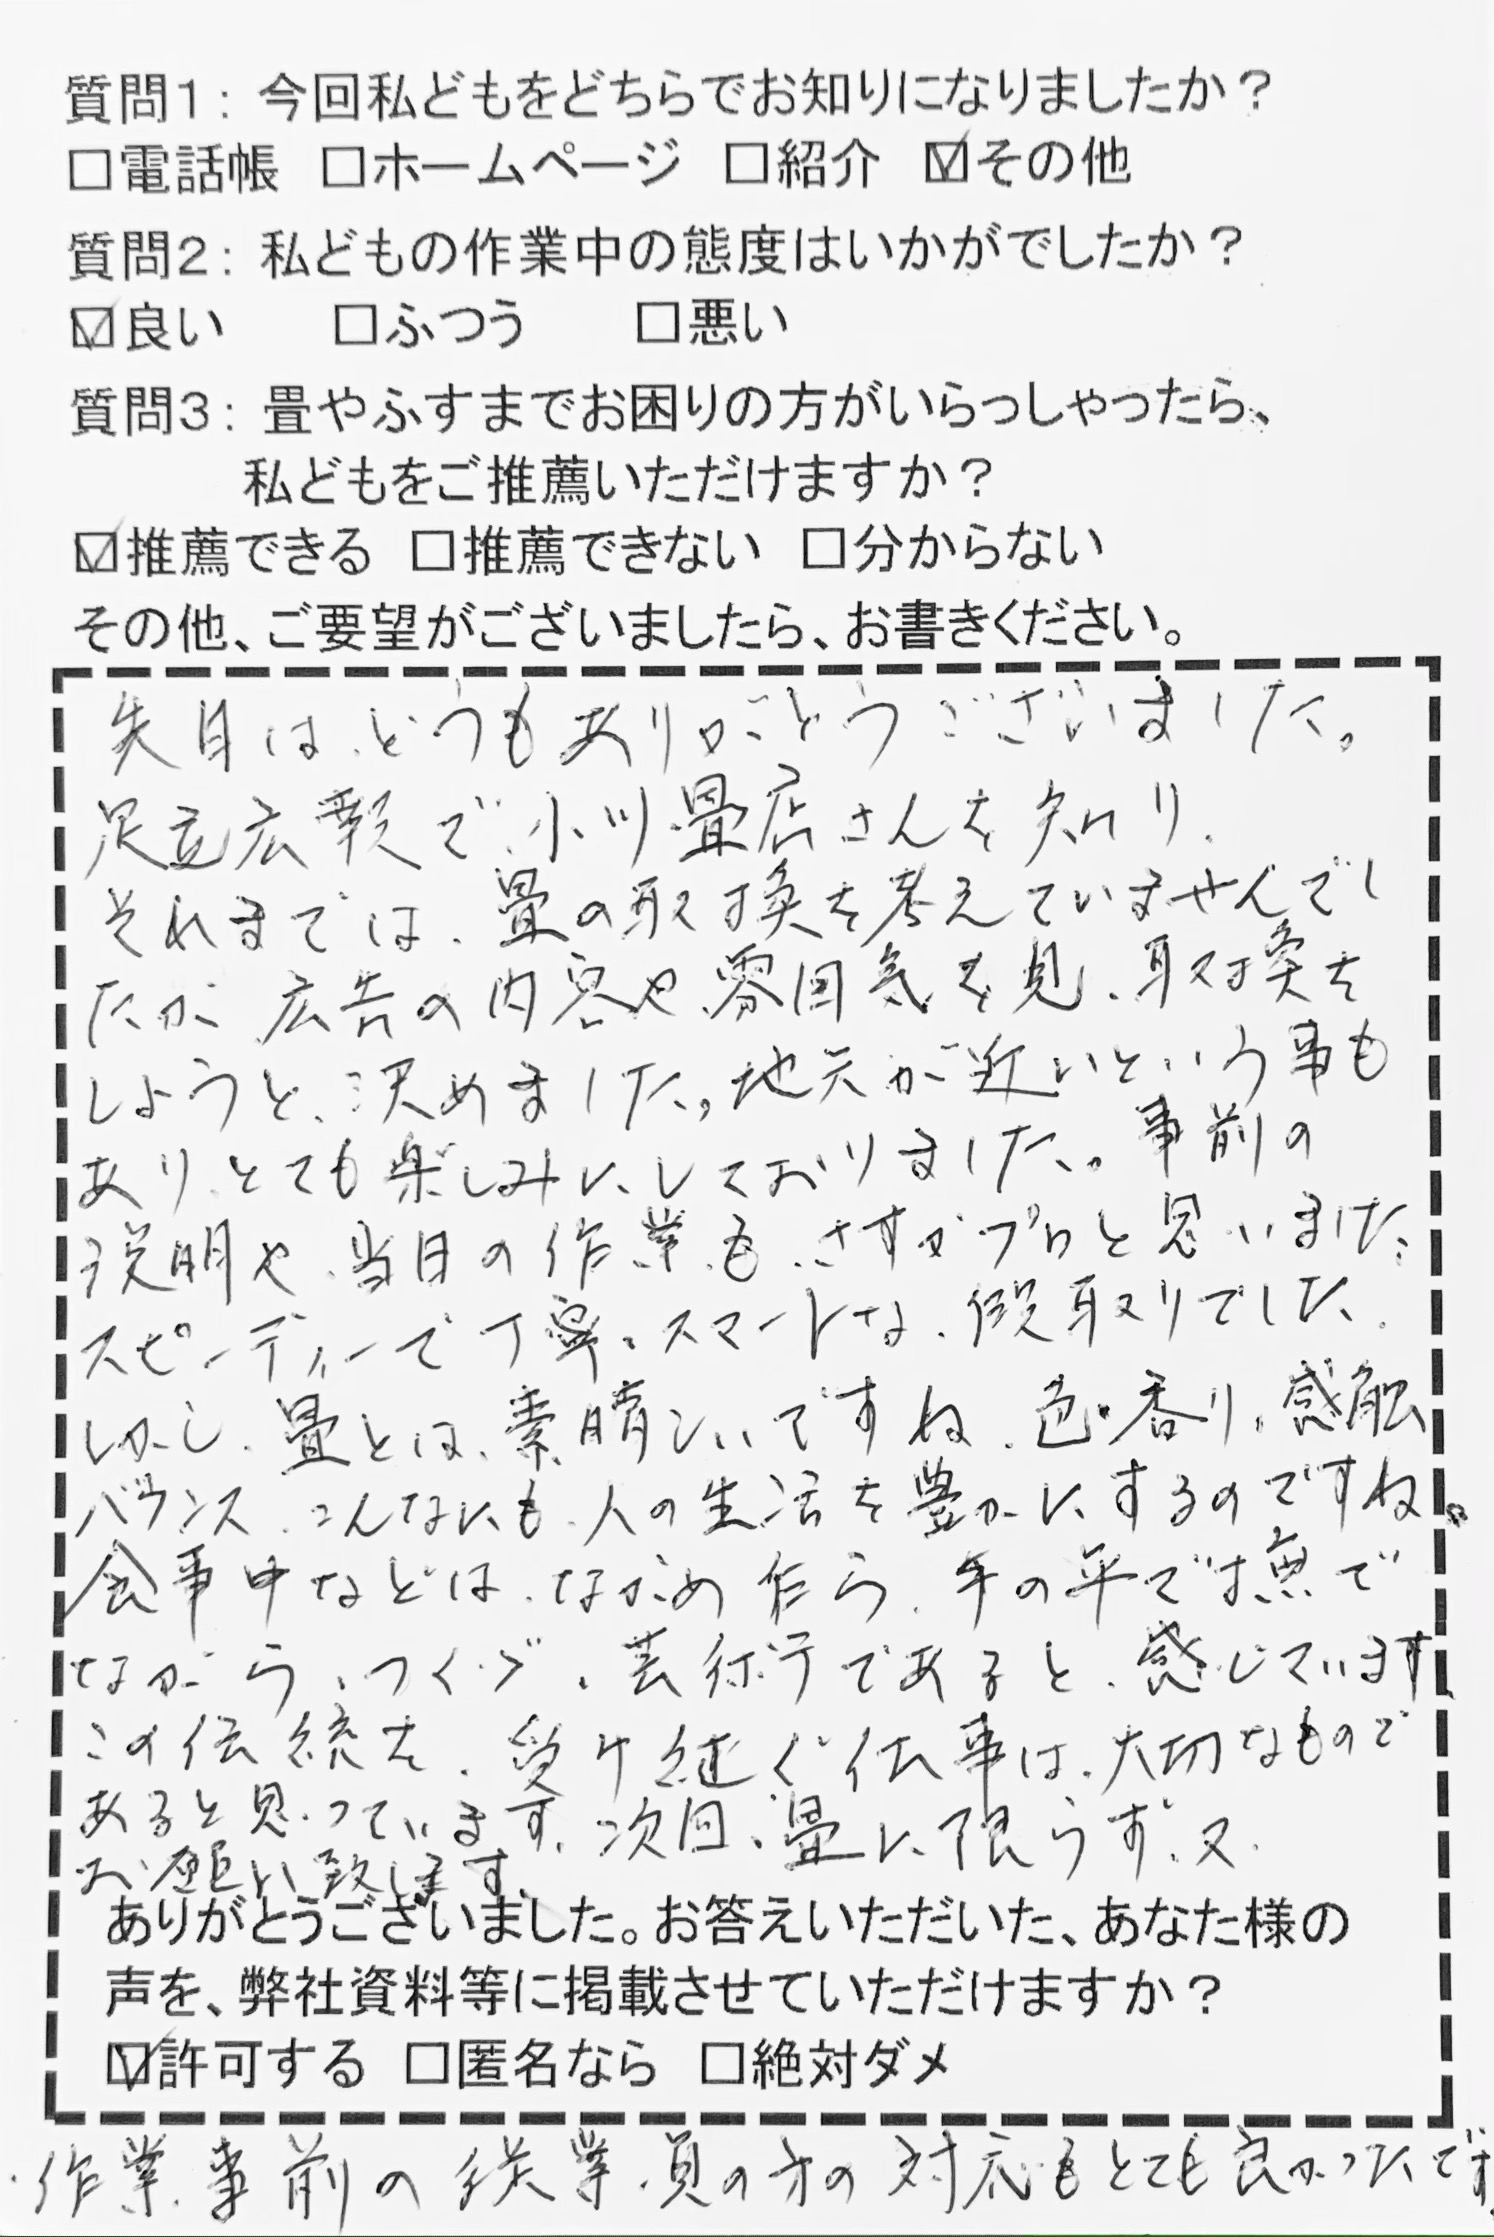 質問1: 今回私どもをどちらでお知りになりましたか?
□電話帳 □ホームページ □紹介 ☑その他
質問2: 私どもの作業中の態度はいかがでしたか?
☑良い □ふつう □悪い
質問3: 畳やふすまでお困りの方がいらっしゃったら、
私どもをご推薦いただけますか?
☑推薦できる □推薦できない □分からない
その他、ご要望がございましたら、お書きください。
先日は、どうもありがとうございました。
足立広報で、小川畳店さんを知り、
それまでは、畳の取換を考えていませんでし
たが 広告の内容や、雰囲気を見、取換を
しようと、決めました。地元が近いという事も
あり、とても楽しみにしておりました。事前の
説明や、当日の作業も、さすがプロと思いました。
スピーディーで丁寧。スマートな、段取りでした。
しかし、畳とは、素晴しいですね、色・香り、感触
バランス、こんなにも、人の生活を豊かにするのですね。
食事中などは、ながめ乍ら、手の平で撫で
ながら、つくづく、芸術であると、感じています。
この伝統を、受け継ぐ仕事は、大切なもので
あると思っています。次回、畳に限らず、又、
お願い致します。
ありがとうございました。お答えいただいた、あなた様の
声を、弊社資料等に掲載させていただけますか?
☑許可する □匿名なら □絶対ダメ
・作業、事前の従業員の方の対応もとても良かったです。